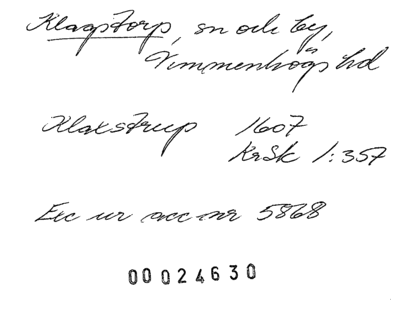 Klagstorp, sn och by,
Vemmenhögs hd
Klaxstrup 1607
KrSk 1:357
Exc ur acc nr 5868
00024630